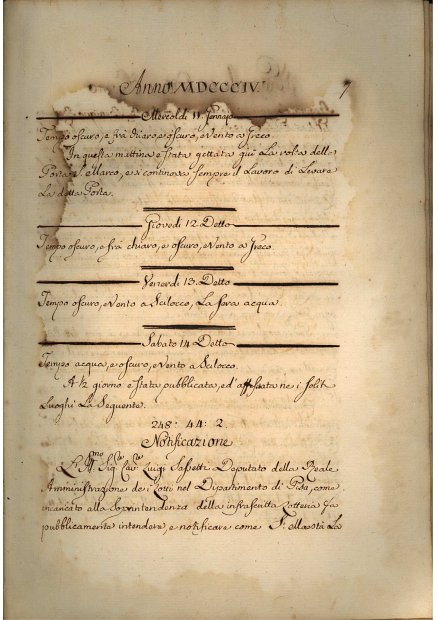 Anno MDCCCIV.
7
Mercoldi 11 Gennajo
Tempo oscuro, e frà chiaro, e oscuro, e Vento a Greco.
In questa mattina è stata gettata giù La volta della
Porta S. Marco, e si continova sempre il Lavoro di Levare
La detta Porta.
Giovedi 12. Detto
Tempo oscuro, e frà chiaro, e oscuro, e Vento a Greco.
Venerdi 13. Detto
Tempo oscuro, e Vento a Scilocco, La sera acqua.
Sabato 14 Detto
Tempo acqua, e oscuro, e Vento a Scilocco.
A ½ giorno è stata pubblicata, ed affissata ne i soliti
Luoghi La Seguente.
248: 44: 2.
Notificazione
L'Ill.mo Sig.re Cav.re Luigi Sassetti Deputato della Reale
Amministrazione de i Lotti nel Dipartimento di Pisa, come
incaricato alla Soprintendenza della infrascritta Lotteria fa
pubblicamente intendere, e notificare come S. Maestà La